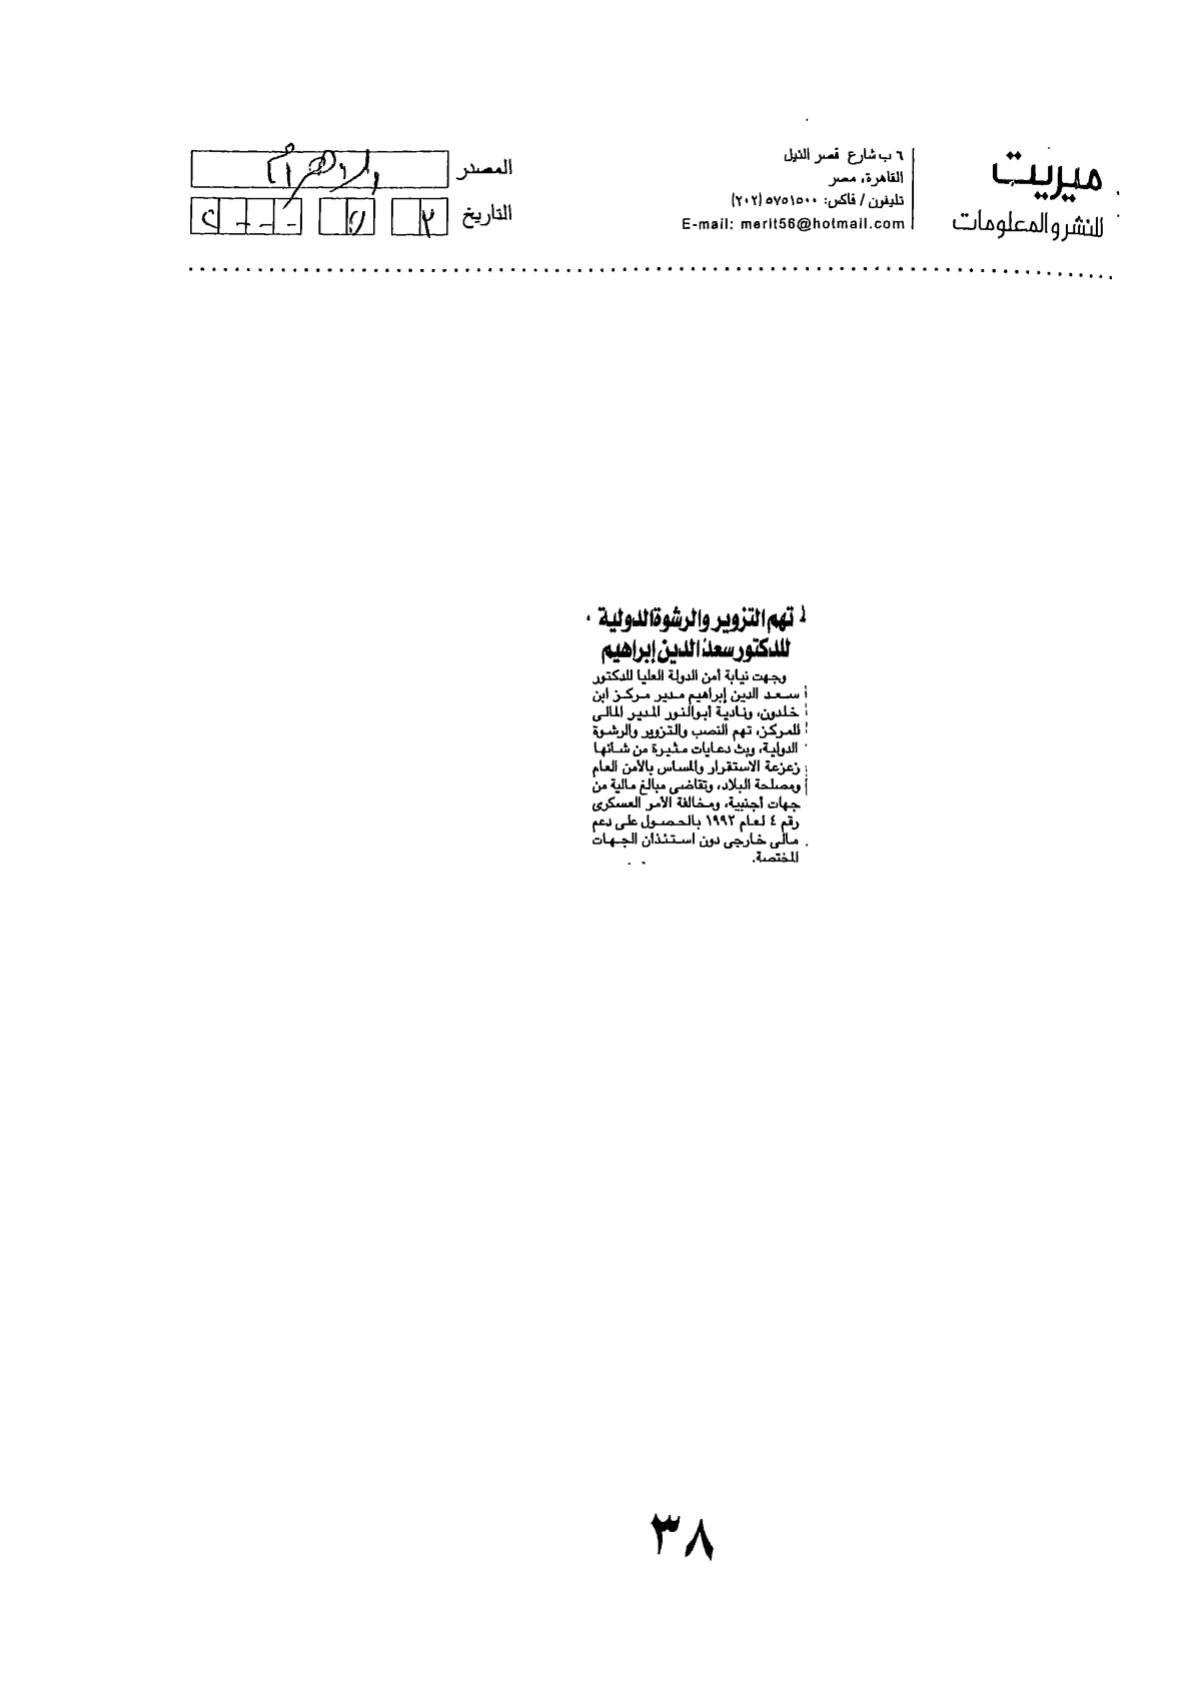 ميريت
للنشر والمعلومات
٦ ب شارع قصر النيل
القاهرة، مصر
تليفون / فاكس: ٥٧٥١٥٠٠ (٢٠٢)
E-mail: merit56@hotmail.com
المصدر الاهرام
التاريخ
تهم التزوير والرشوة الدولية
للدكتور سعد الدين إبراهيم
وجهت نيابة أمن الدولة العليا للدكتور
سعد الدين إبراهيم مدير مركز ابن
خلدون، ونادية أبوالنور المدير المالى
للمركز، تهم النصب والتزوير والرشوة
الدولية، وبث دعايات مثيرة من شأنها
زعزعة الاستقرار والمساس بالأمن العام
ومصلحة البلاد، وتقاضى مبالغ مالية من
جهات أجنبية، ومخالفة الأمر العسكرى
رقم ٤ لعام ١٩٩٢ بالحصول على دعم
مالى خارجى دون استئذان الجهات
المختصة.
٣٨